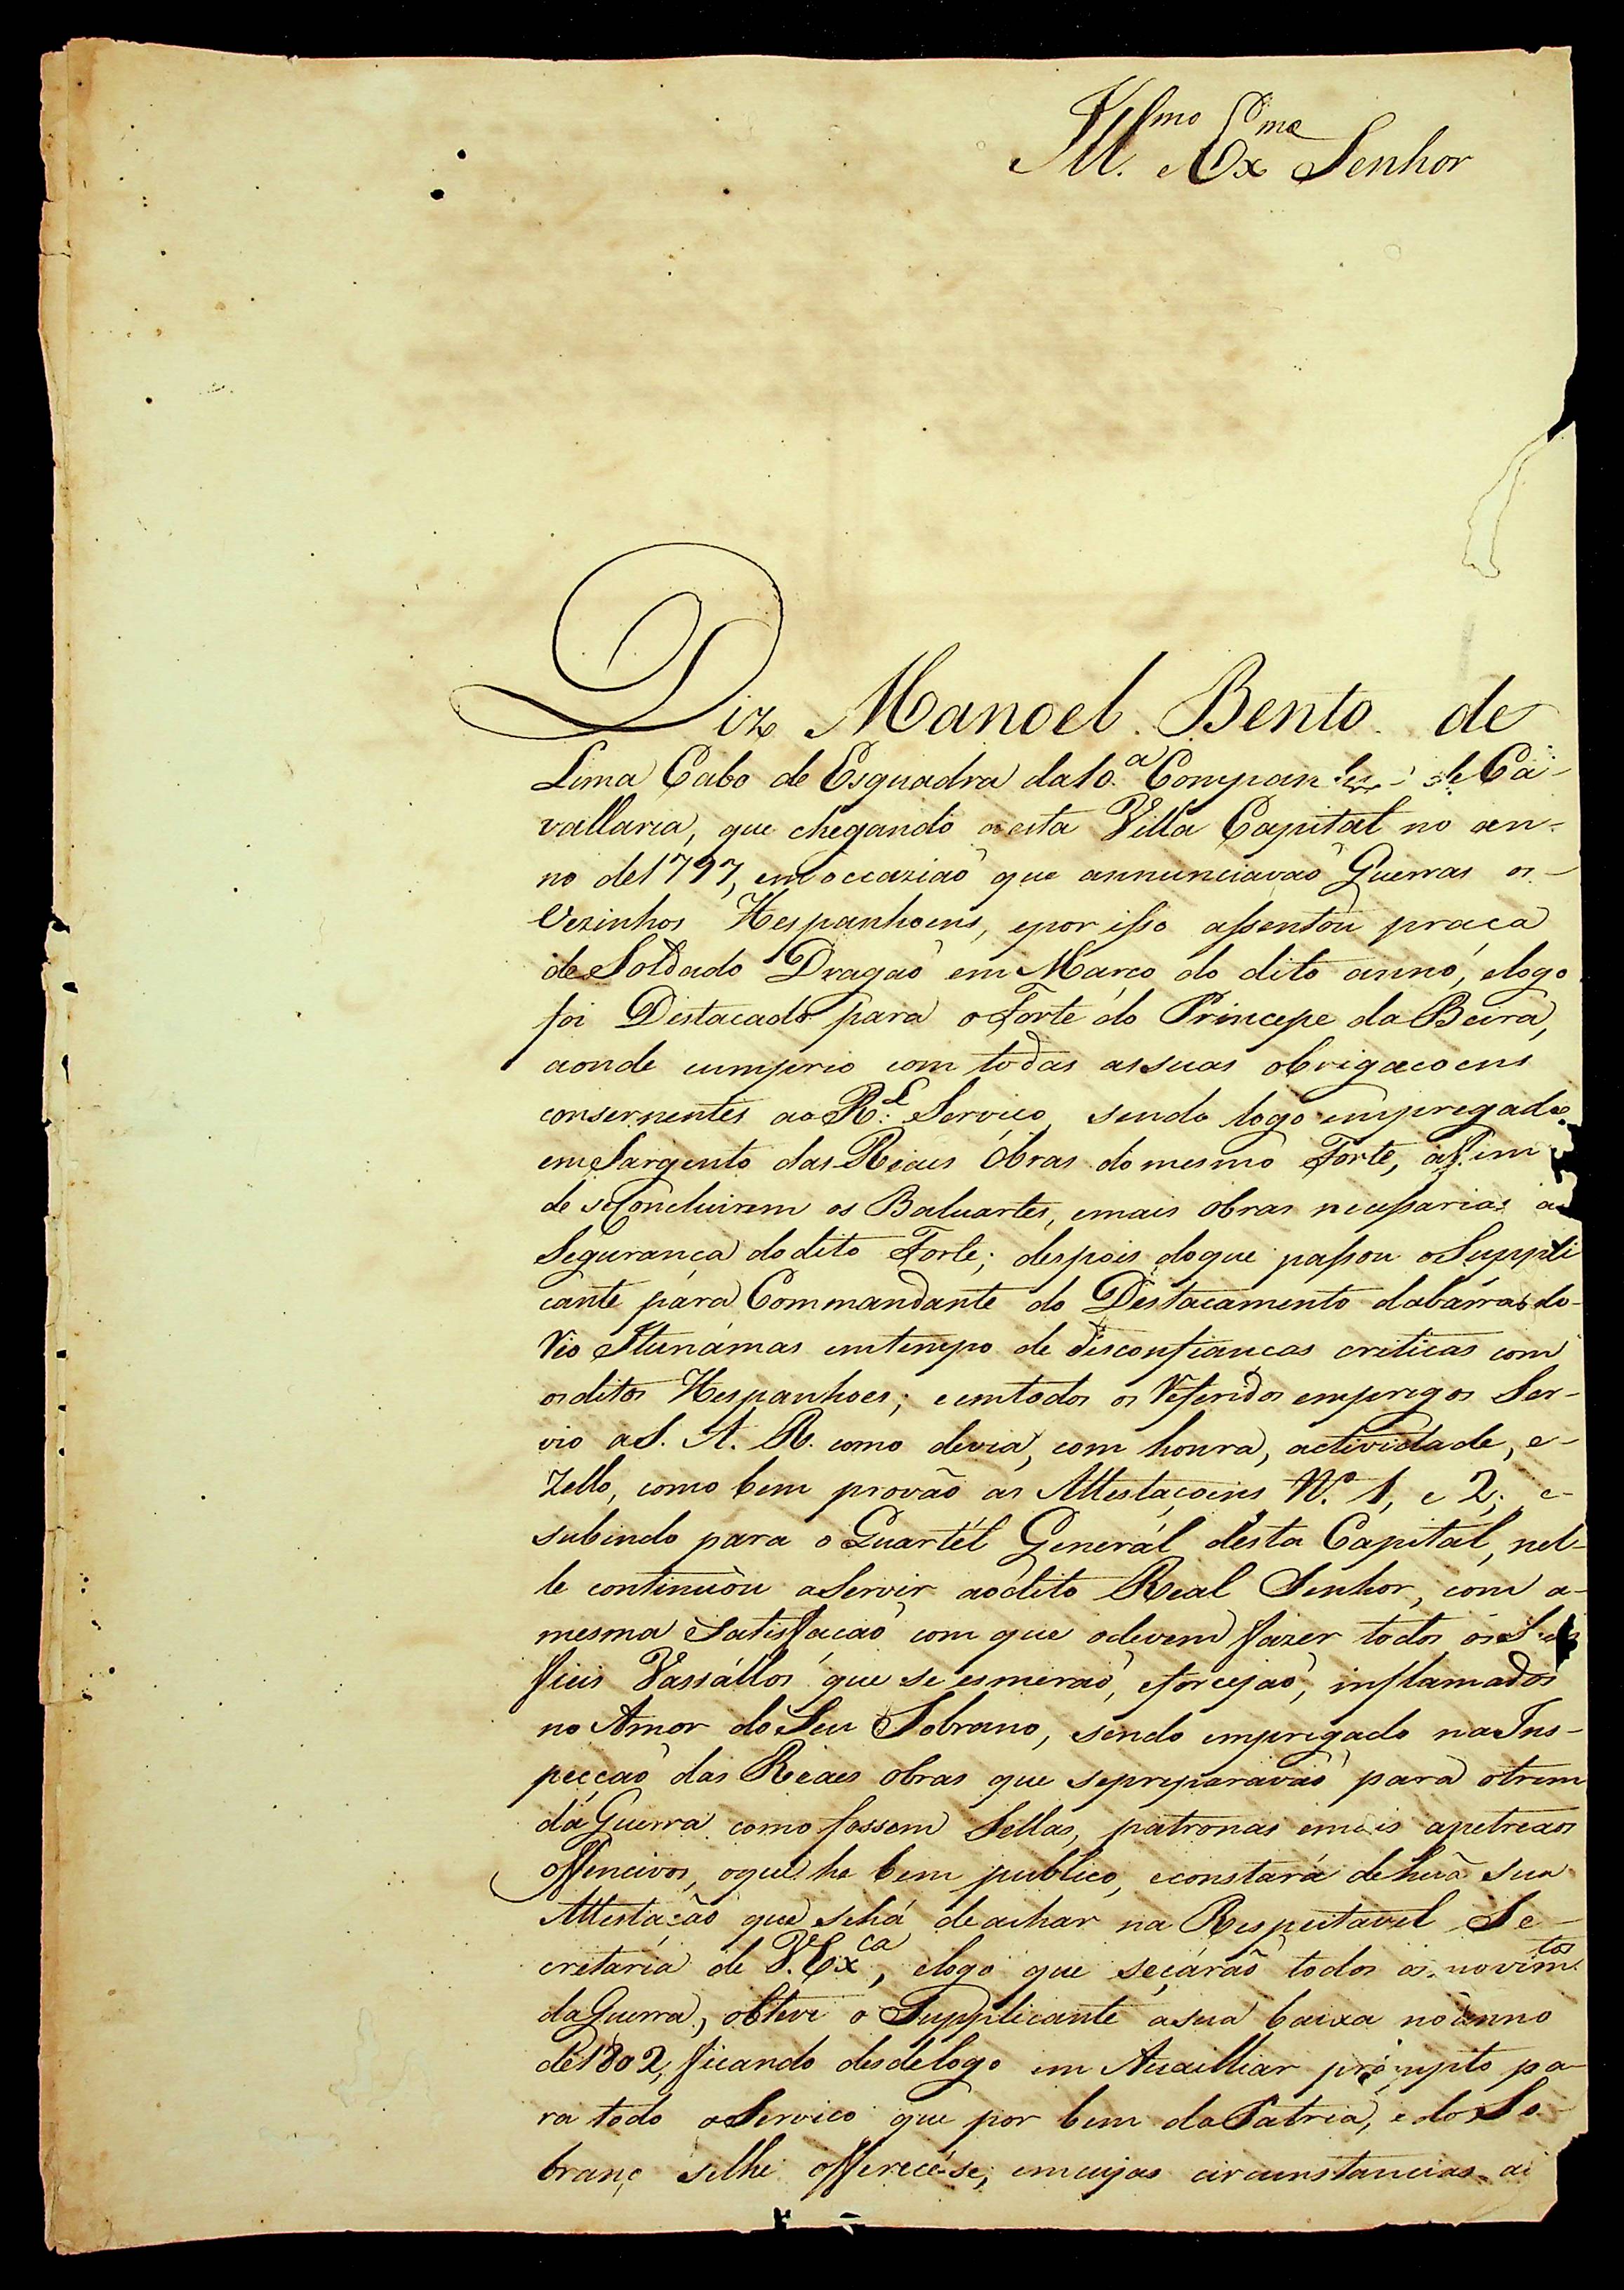 Ill.mo Ex.mo Senhor
Diz Manoel Bento de
Lima Cabo de Esquadra da 10.a Companhia de Ca-
vallaria, que chegando a esta Villa Capital no an-
no de 1797, em occaziaõ que annunciavaõ Guerras os
Vezinhos Hespanhoens, e por isso assentou praca
de Soldado Dragaõ em Março do dito anno, e logo
foi Distacado para o Forte do Principe da Beira,
aonde cumprio com todas as suas obrigacoens
consernentes ao R.l Servico, sendo logo empregado
em Sargento das Reais Obras do mesmo Forte, afim
de se Concluirem os Baluartes, e mais obras necessarias a
Segurança do dito Forte; despois do que passou o Suppli
cante para Commandante do Destacamento da bárra do
Rio Itunámas em tempo de disconfiancas criticas com
os ditos Hespanhoes; e em todos os Referidos empregos Ser-
vio a S. A. R. como devia, com honra, actividade, e-
Zello, como bem provão as Attestaçoens N.o 1, e 2; e-
subindo para o Quartél Generál desta Capital, nel-
le continuòu a Servir ao dito Real Senhor, com a-
mesma Satisfacaõ com que o devem fazer todos os Seus
fieis Vassállos que se esmeraõ, e forcejaõ, inflamados
no Amor do Seu Sobrano, sendo empregado na Ins-
pecçaõ das Reaes obras que se preparavaõ para o trem
da Guerra como fossem Sellas, patronas e mais apetrexos
offencivos, o que he bem publico, e constará de huã sua
Attestaçaõ que se há de achar na Respeitavel Se-
cretaria de V. Ex.ca, e logo que seçáraõ todos os novim.tos
da Guerra, obteve o Supplicante a sua baixa no anno
de 1802, ficando desde logo em Auxilliar prompto pa-
ra todo o Servico que por bem da Patria, e do So-
brano se lhe offerecé-se; em cujas circunstancias a